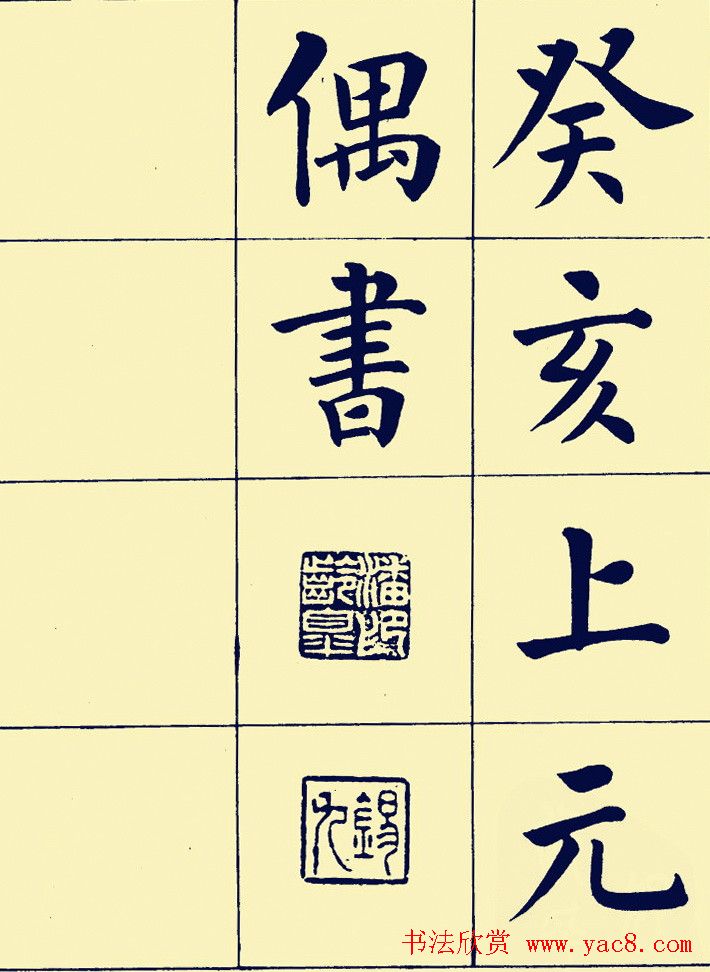 癸亥上元
偶書
潘印齡皋
錫九
书法欣赏 www.yac8.com